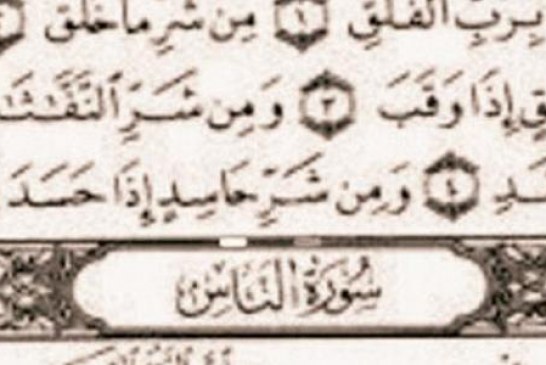 بِرَبِّ ٱلْفَلَقِ ١ مِن شَرِّ مَا خَلَقَ
إِذَا وَقَبَ ٣ وَمِن شَرِّ ٱلنَّفَّٰثَٰ
دِ ٤ وَمِن شَرِّ حَاسِدٍ إِذَا حَسَدَ
سُورَةُ النَّاسِ